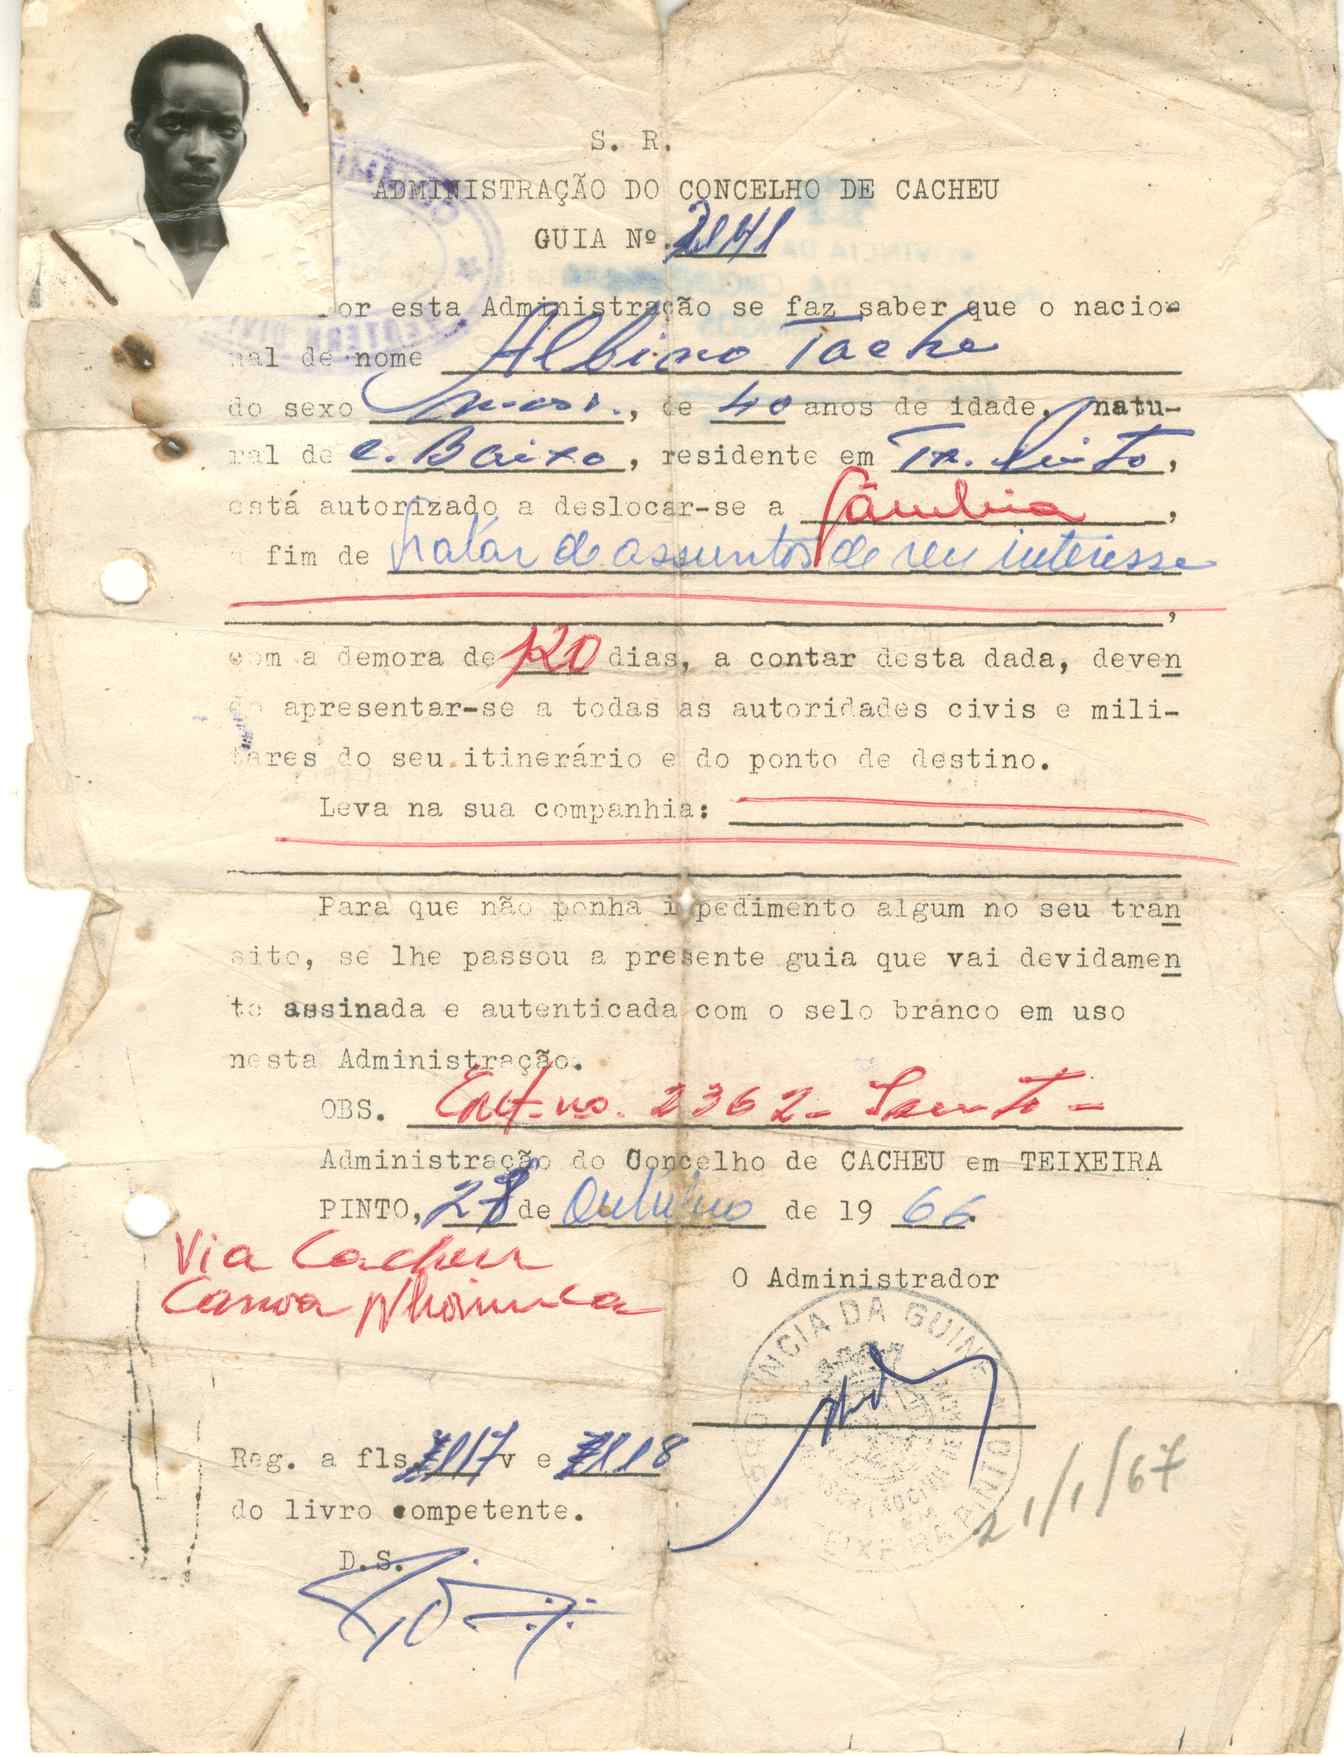 S. R.
ADMINISTRAÇÃO DO CONCELHO DE CACHEU
GUIA Nº.
or esta Administração se faz saber que o nacio-
nal de nome Albino Tache
do sexo masc., de 40 anos de idade, natu-
ral de C. Baixo, residente em Tx. Pinto,
está autorizado a deslocar-se a Gâmbia,
a fim de tratar de assuntos de seu interesse
,
com a demora de 120 dias, a contar desta dada, deven
do apresentar-se a todas as autoridades civis e mili-
tares do seu itinerário e do ponto de destino.
Leva na sua companhia:
Para que não ponha i pedimento algum no seu tran
sito, se lhe passou a presente guia que vai devidamen
te assinada e autenticada com o selo branco em uso
nesta Administração.
OBS. Ent. no. 2362-
Administração do Concelho de CACHEU em TEIXEIRA
PINTO, 28 de Outubro de 19 66.
Via Cacheu
Canoa Nhominca
O Administrador
PROVÍNCIA DA GUINÉ
TEIXEIRA PINTO
21/1/67
Reg. a fls 17 v e 18
do livro competente.
D.S.